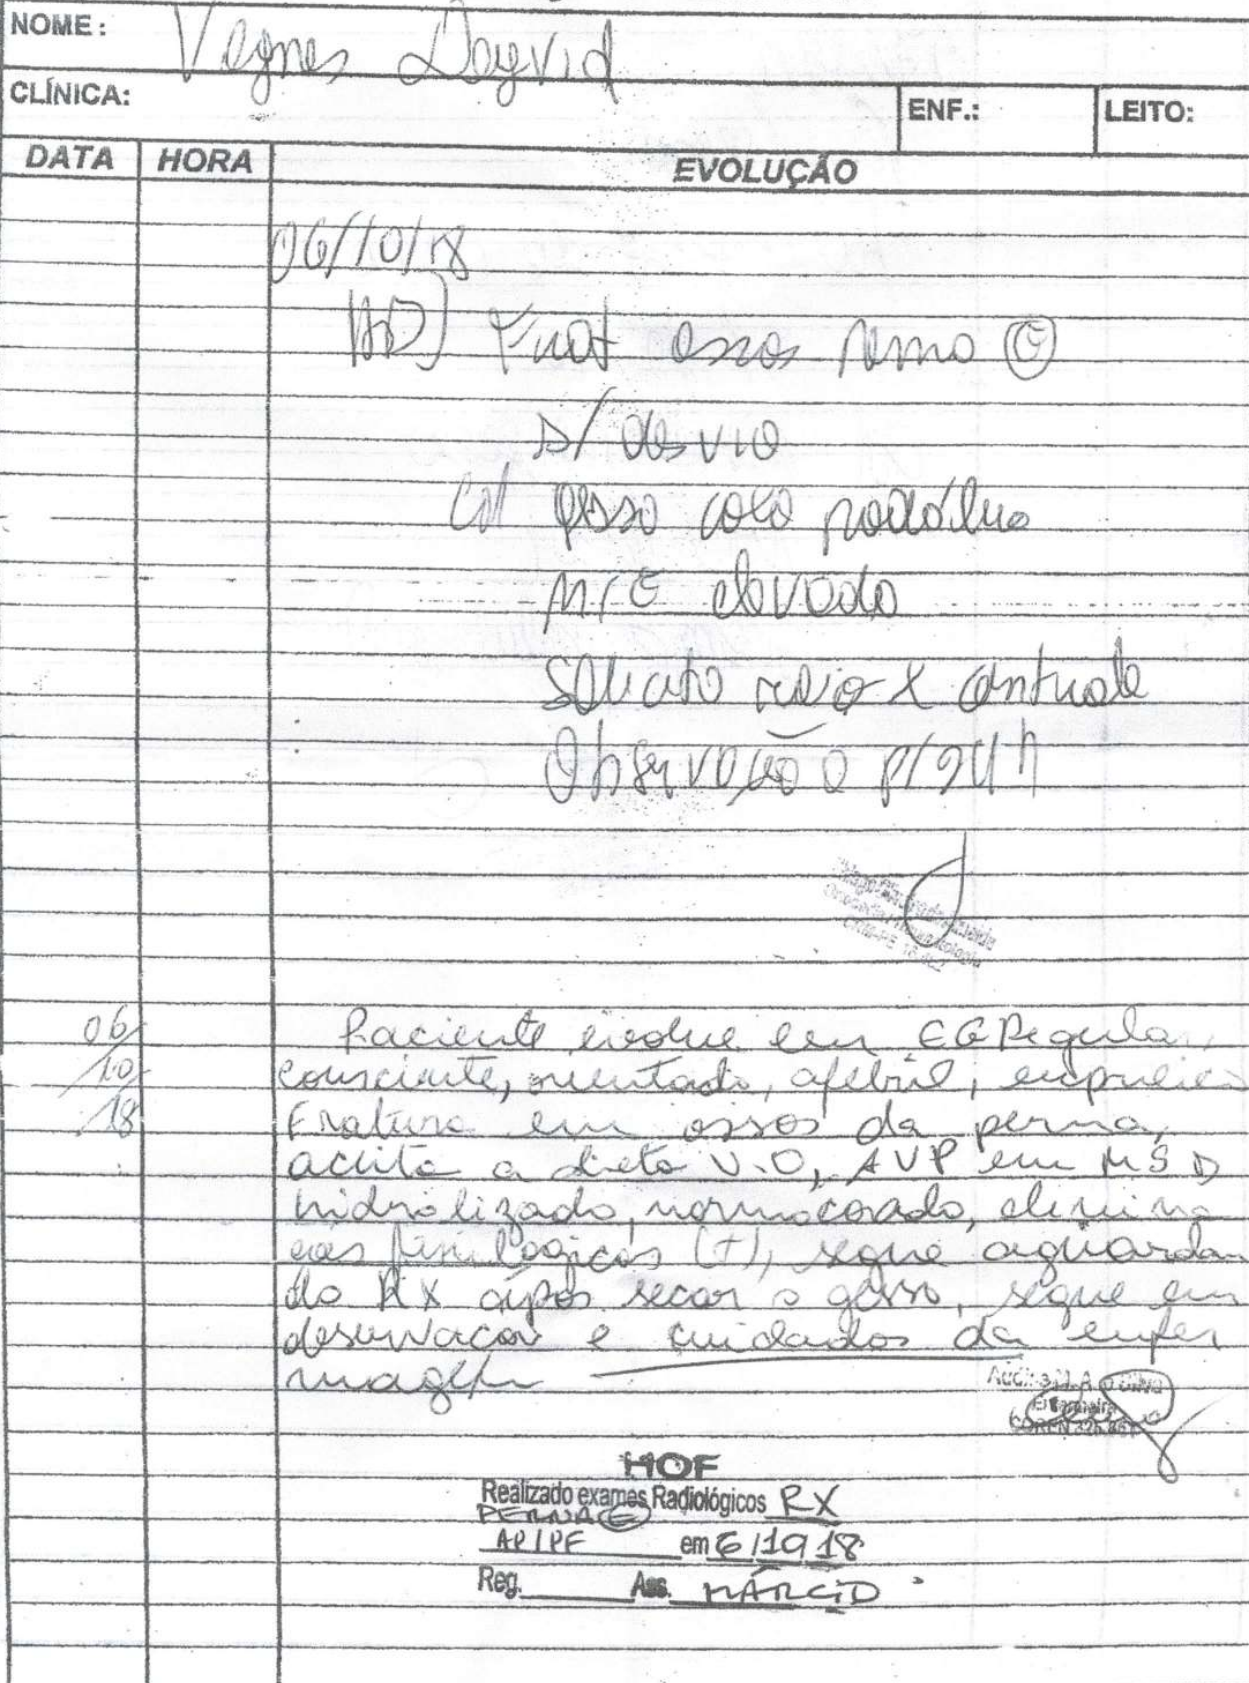 NOME: Vagnes Dayvid
CLÍNICA: ENF.: LEITO:
DATA HORA EVOLUÇÃO
06/10/18
HD) Frat ossos perna (E)
s/ desvio
Cd/ gesso coxo podálico
MIE elevado
Solicito raio X controle
Observação p/24h
06/10/18
Paciente evolue em EG Regular,
consciente, orientado, afebril,
Fratura em ossos da perna,
aceita a dieta V.O, AVP em MSD
hidrolizado, normocorado, elimina
coes fisiologicas (+), segue aguardan
do RX após secar o gesso, segue em
observacao e cuidados da enfer
magem
Enfermeira
COREN
HOF
Realizado exames Radiológicos RX
PERNA (E)
AP/PF em 6/10/18
Reg. Ass. MÁRCIO